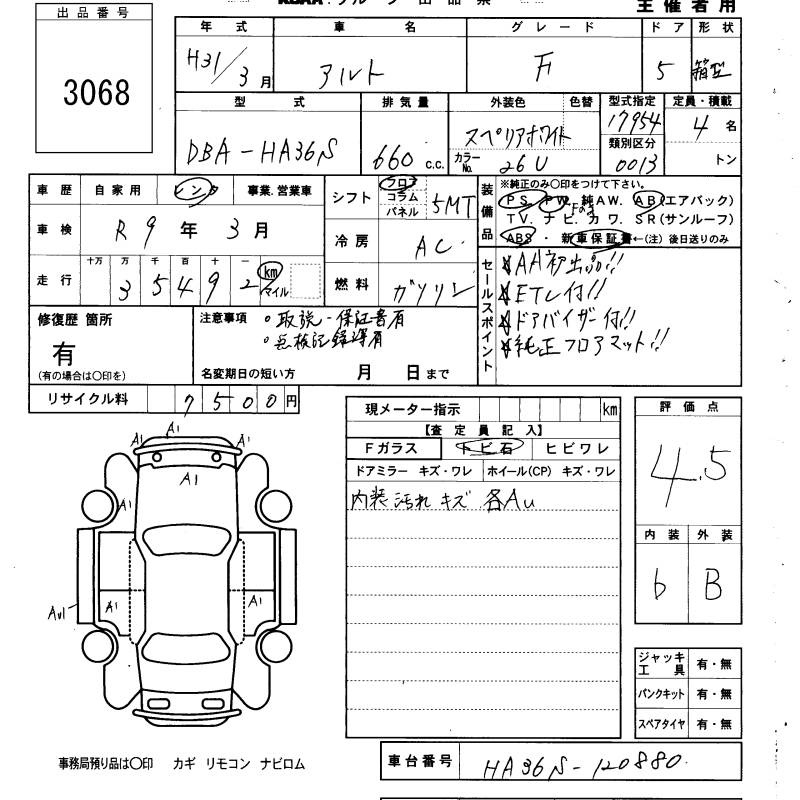 出品番号
3068
主催者用
年式 車名 グレード ドア 形状
H31/3月 アルト F 5 箱型
型式 排気量 外装色 色替 型式指定 定員・積載
DBA-HA36S 660 c.c. スペリアホワイト 17954 4名
カラーNo. 26U 類別区分 0013 トン
車歴 自家用 レンタ 事業.営業車
車検 R9年3月
走行 十万 万 千 百 十 一 km マイル
35492
シフト フロア コラム パネル 5MT
冷房 AC
燃料 ガソリン
装備品 ※純正のみ〇印をつけて下さい。
PS. PW. 純AW. AB(エアバック)
TV. ナビ. カワ. SR(サンルーフ)
ABS・新車保証書←(注)後日送りのみ
セールスポイント
AA初出品!!
ETC付!!
ドアバイザー付!!
純正フロアマット!!
修復歴 箇所
有
(有の場合は〇印を)
注意事項
・取説・保証書有
・点検記録簿有
名変期日の短い方 月 日まで
リサイクル料 7500円
現メーター指示 km
【査定員記入】
Fガラス トビ石 ヒビワレ
ドアミラー キズ・ワレ ホイール(CP) キズ・ワレ
内装汚れ キズ 各AU
評価点
4.5
内装 外装
b B
A1
A1 A1
A1
A1
A1 A1
AU1
ジャッキ工具 有・無
パンクキット 有・無
スペアタイヤ 有・無
事務局預り品は〇印 カギ リモコン ナビロム
車台番号 HA36S-120880